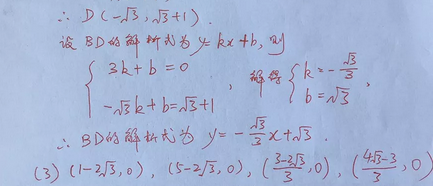 ∴ D(-√3, √3+1).
设BD的解析式为 y=kx+b, 则
{ 3k+b=0
-√3k+b=√3+1 , 解得 { k=-√3/3
b=√3 ,
∴ BD的解析式为 y=-√3/3x+√3.
(3) (1-2√3, 0), (5-2√3, 0), (3-2√3/3, 0), (4√3-3/3, 0)